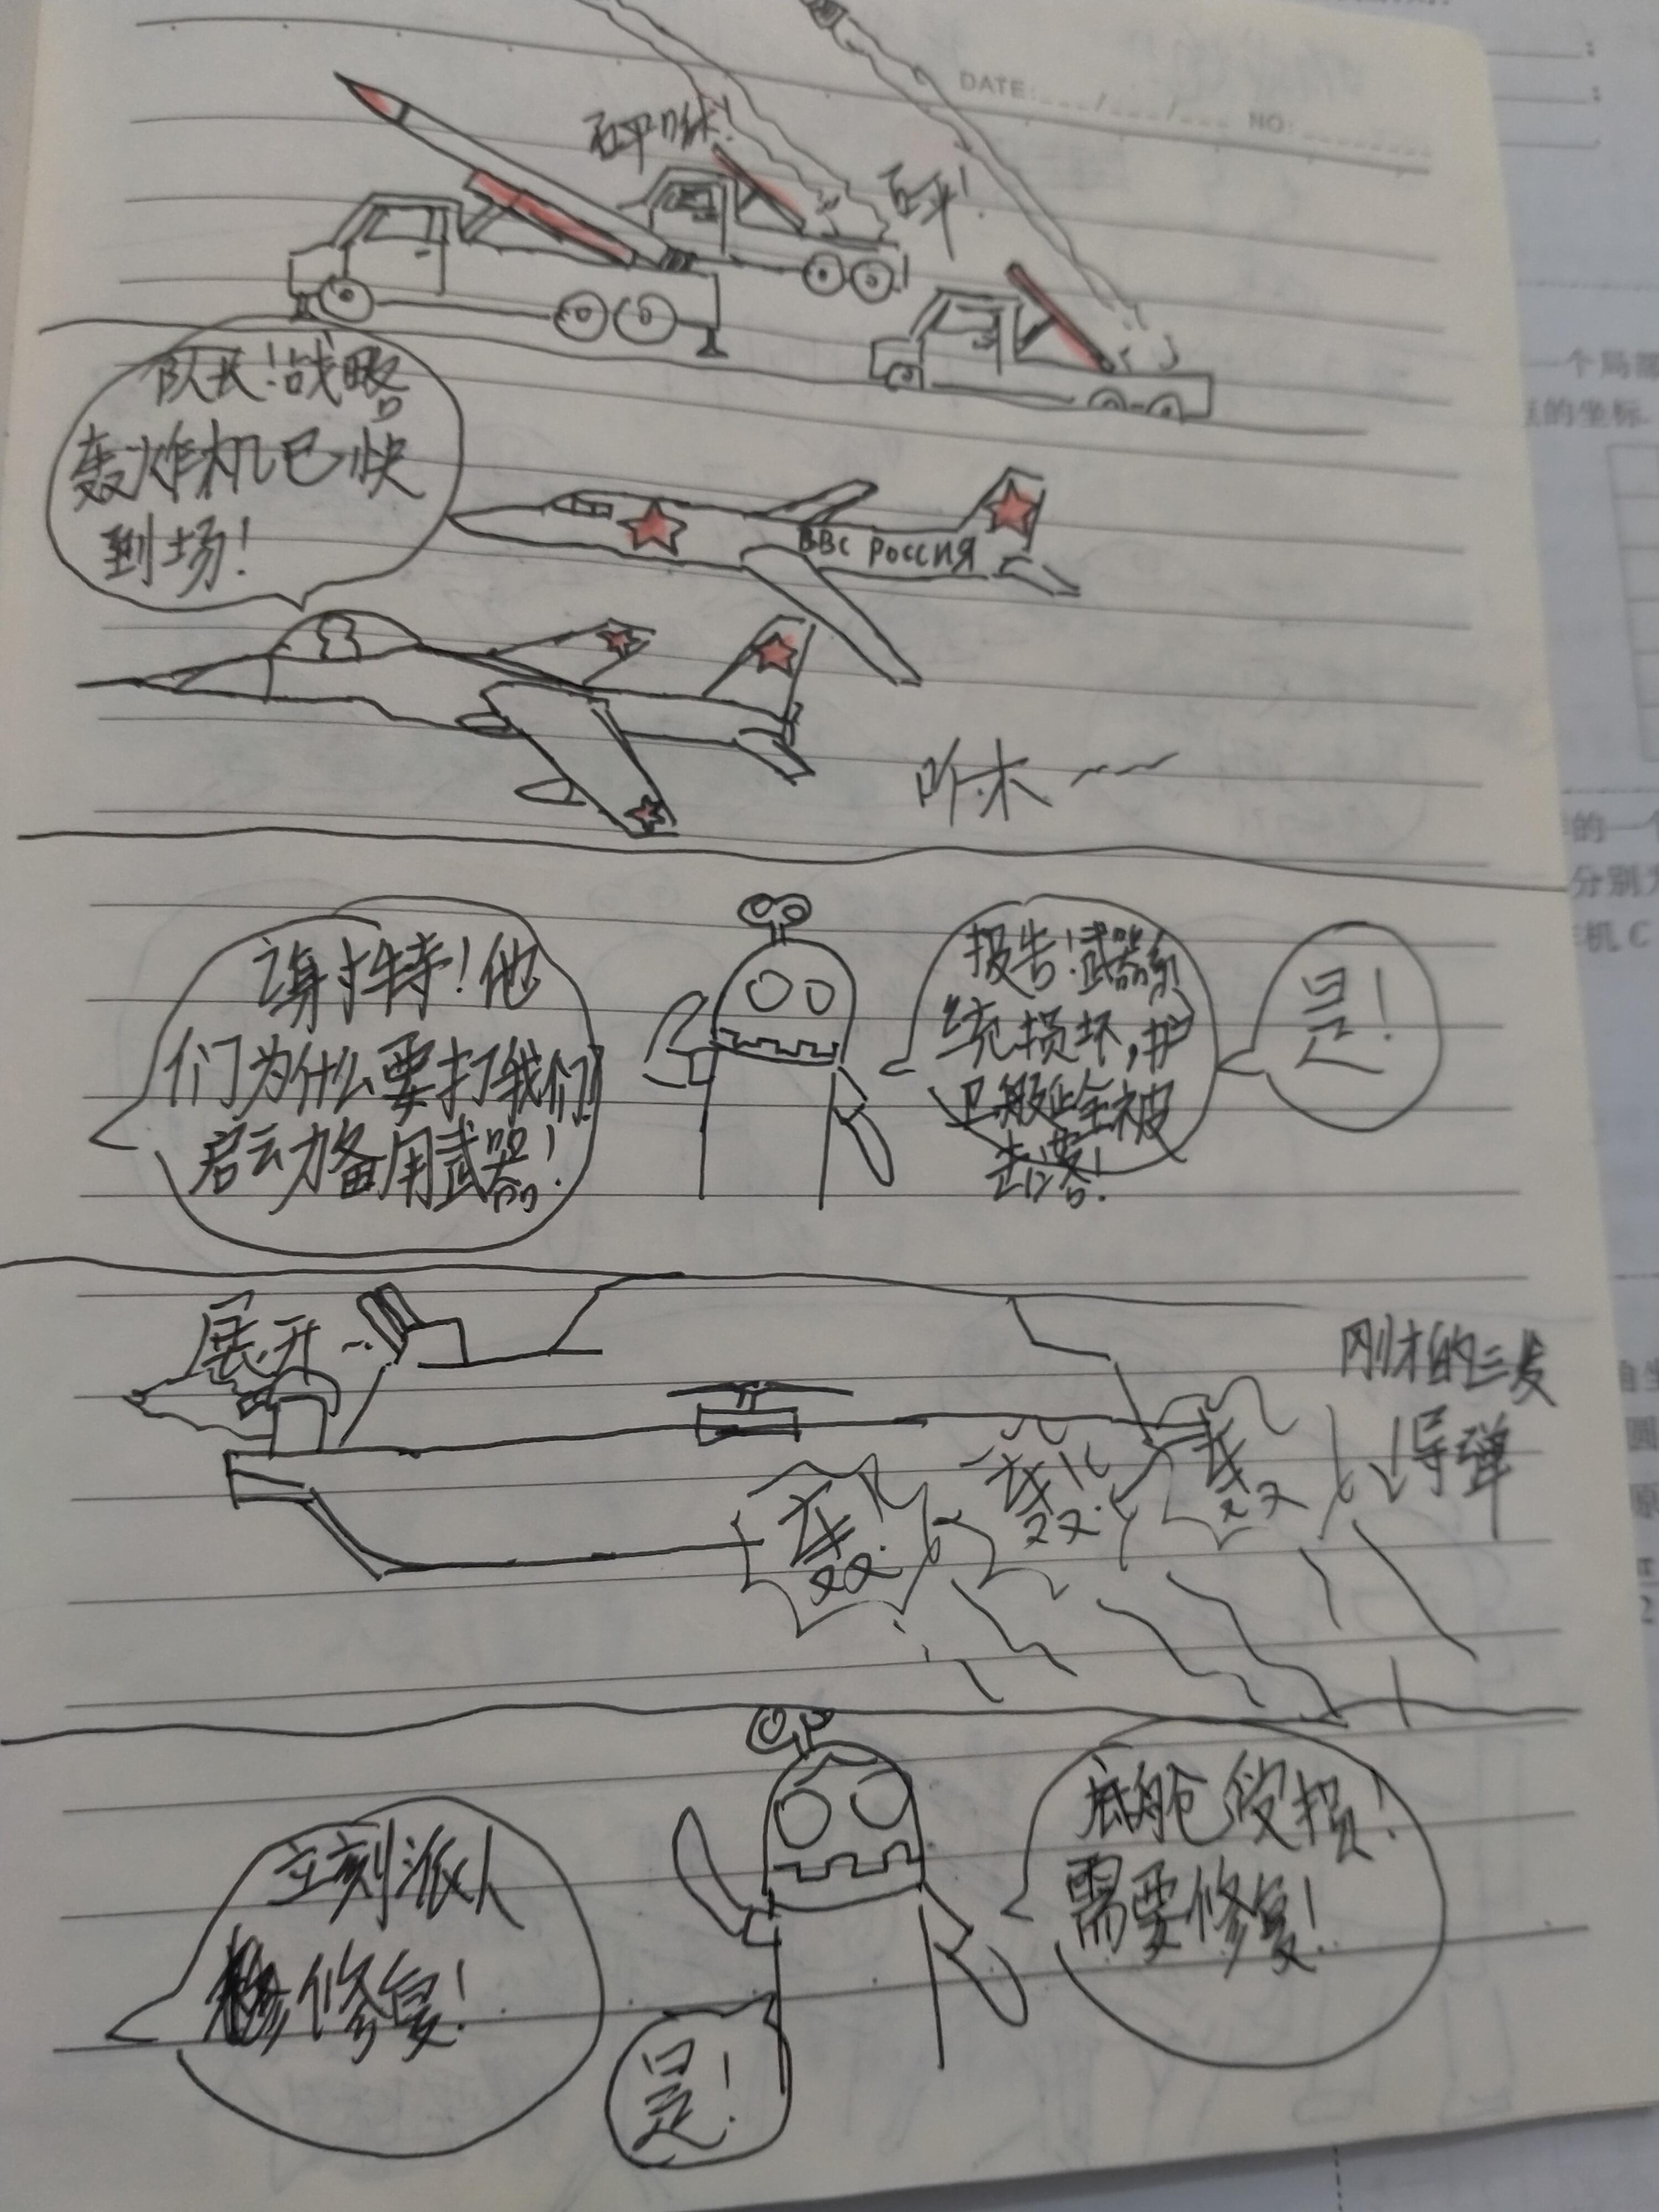 DATE: / / NO:
砰咻!
砰!
队长!战略
轰炸机已快
到场!
ВВС РОССИЯ
咋木~~
谢特!他
们为什么要打我们!
启动备用武器!
报告!武器系
统损坏,护
卫舰全被
击毁!
是!
展开~
刚才的三发
导弹
轰!
轰!
轰
底舱受损!
需要修复!
立刻派人
修复!
是!
一个局部
点的坐标.
的一个
分别为
机C